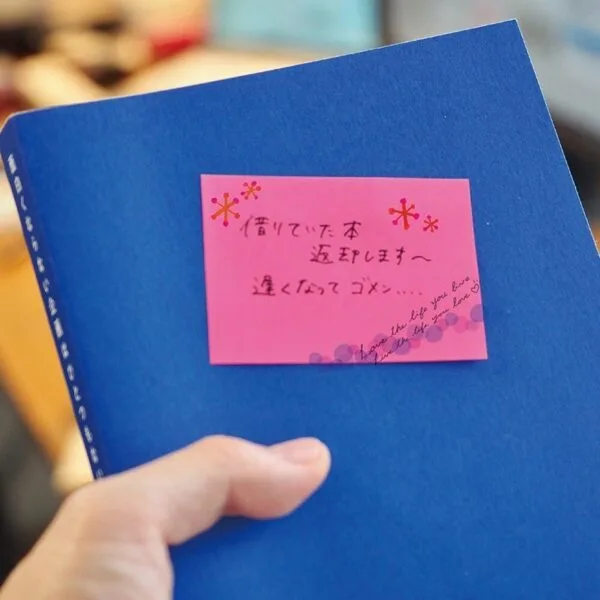 借りていた本
返却します～
遅くなってゴメン....
Love the life you live
Live the life you love ♡